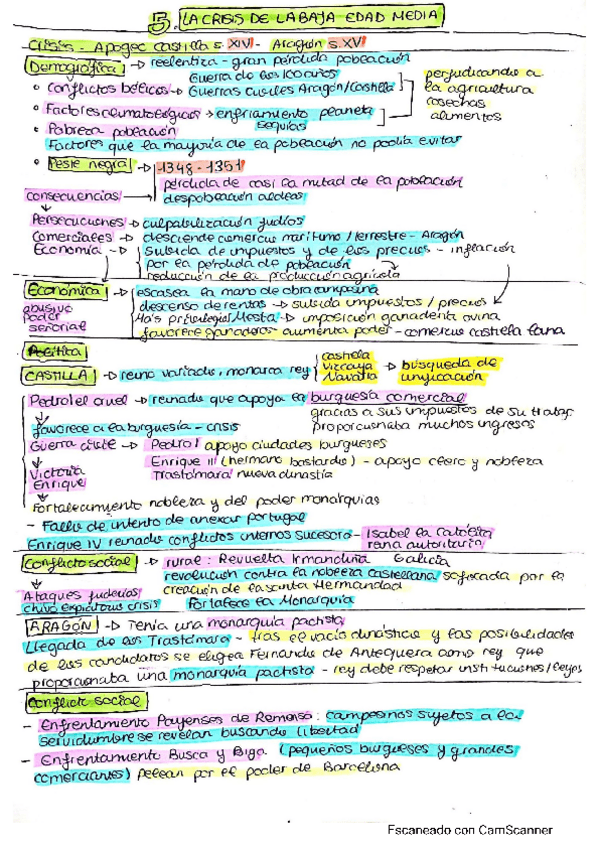 5. LA CRISIS DE LA BAJA EDAD MEDIA
Crisis - Apogeo Castilla s. XIV - Aragón s. XV
Demográfica → reelentiza - gran pérdida población
• Conflictos bélicos → Guerra de los 100 años
Guerras civiles Aragón/Castilla
perjudicando a
la agricultura
cosechas
alimentos
• Factores climatológicos → enfriamiento planeta
sequias
• Pobreza población
Factores que la mayoría de la población no podía evitar
• Peste negra → 1348 - 1351
pérdida de casi la mitad de la población
consecuencias → despoblación aldeas
Persecuciones → culpabilización judíos
Comerciales → desciende comercio marítimo / terrestre - Aragón
Economía → Subida de impuestos y de los precios - inflación
por la pérdida de población
reducción de la producción agrícola
Económica → escasea la mano de obra campesina
abusivo
poder
señorial
descenso de rentas → subida impuestos / precios
Más privilegios Mesta → imposición ganadería ovina
favorece ganaderos aumenta poder - comercio castella lana
Política
CASTILLA → reino variado, monarca rey
castella
Vizcaya
Navarra
→ búsqueda de
unificación
Pedro I el cruel → reinado que apoya la burguesía comercial
gracias a sus impuestos de su trabajo
proporcionaba muchos ingresos
favorece a la burguesía - crisis
Guerra civil → Pedro I apoyo ciudades burgueses
Enrique II (hermano bastardo) - apoyo clero y nobleza
Victoria
Enrique
Trastámara nueva dinastía
Fortalecimiento nobleza y del poder monarquías
- Fallo de intento de anexar Portugal
Enrique IV reinado conflictos internos sucesoro - Isabel la Católica
rana autoritaria
Conflicto social → rural: Revuelta Irmandiña Galicia
revolución contra la nobleza castellana sofocada por la
creación de la santa Hermandad
Ataques juderías
chivo expiatorio crisis
Fortalece la Monarquía
ARAGÓN → Tenía una monarquía pactista
Llegada de los Trastámara - tras el vacío dinástico y las posibilidades
de los candidatos se elige a Fernando de Antequera como rey que
proporcionaba una monarquía pactista - rey debe respetar instituciones/leyes
Conflicto social
- Enfrentamiento Payenses de Remensa: campesinos sujetos a la
servidumbre se revelan buscando libertad
- Enfrentamiento Busca y Biga (pequeños burgueses y grandes
comerciantes) pelean por el poder de Barcelona
Escaneado con CamScanner